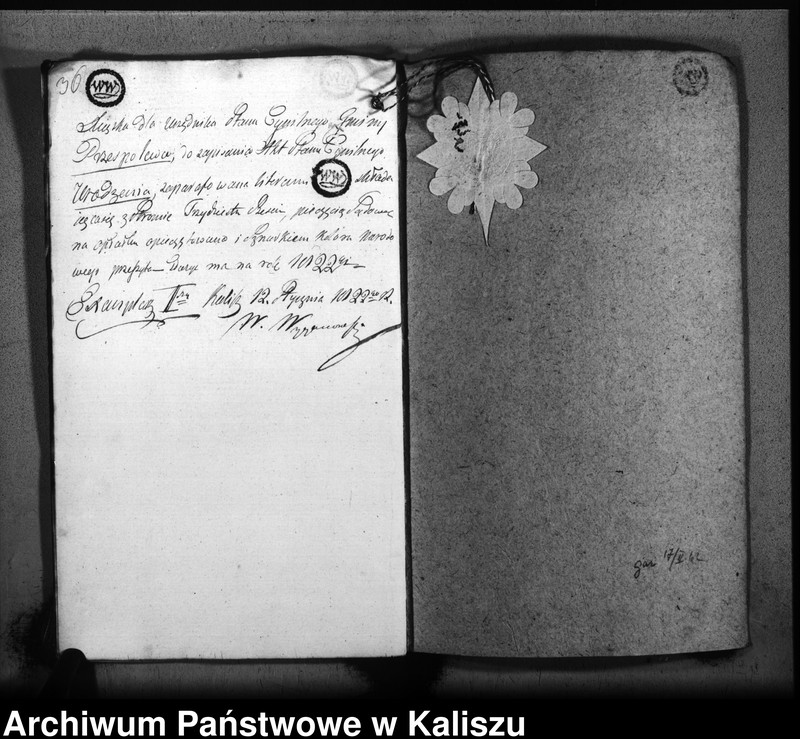 36 WW
Xiążka dla Urzędnika Stanu Cywilnego Gminy
Przespolewa, do zapisania Akt Stanu Cywilnego
Urodzenia, zaparafowana literami WW składa
iąca się z stronic Trzydzieści Sześć, pieczęcią
na opłatku opieczętowano i Sznurkiem koloru
przeszyta daje się na rok 1822gi
Exemplarz II Kalisz 12. Stycznia 1822 r.
W.
gar 17/X 42
Archiwum Państwowe w Kaliszu